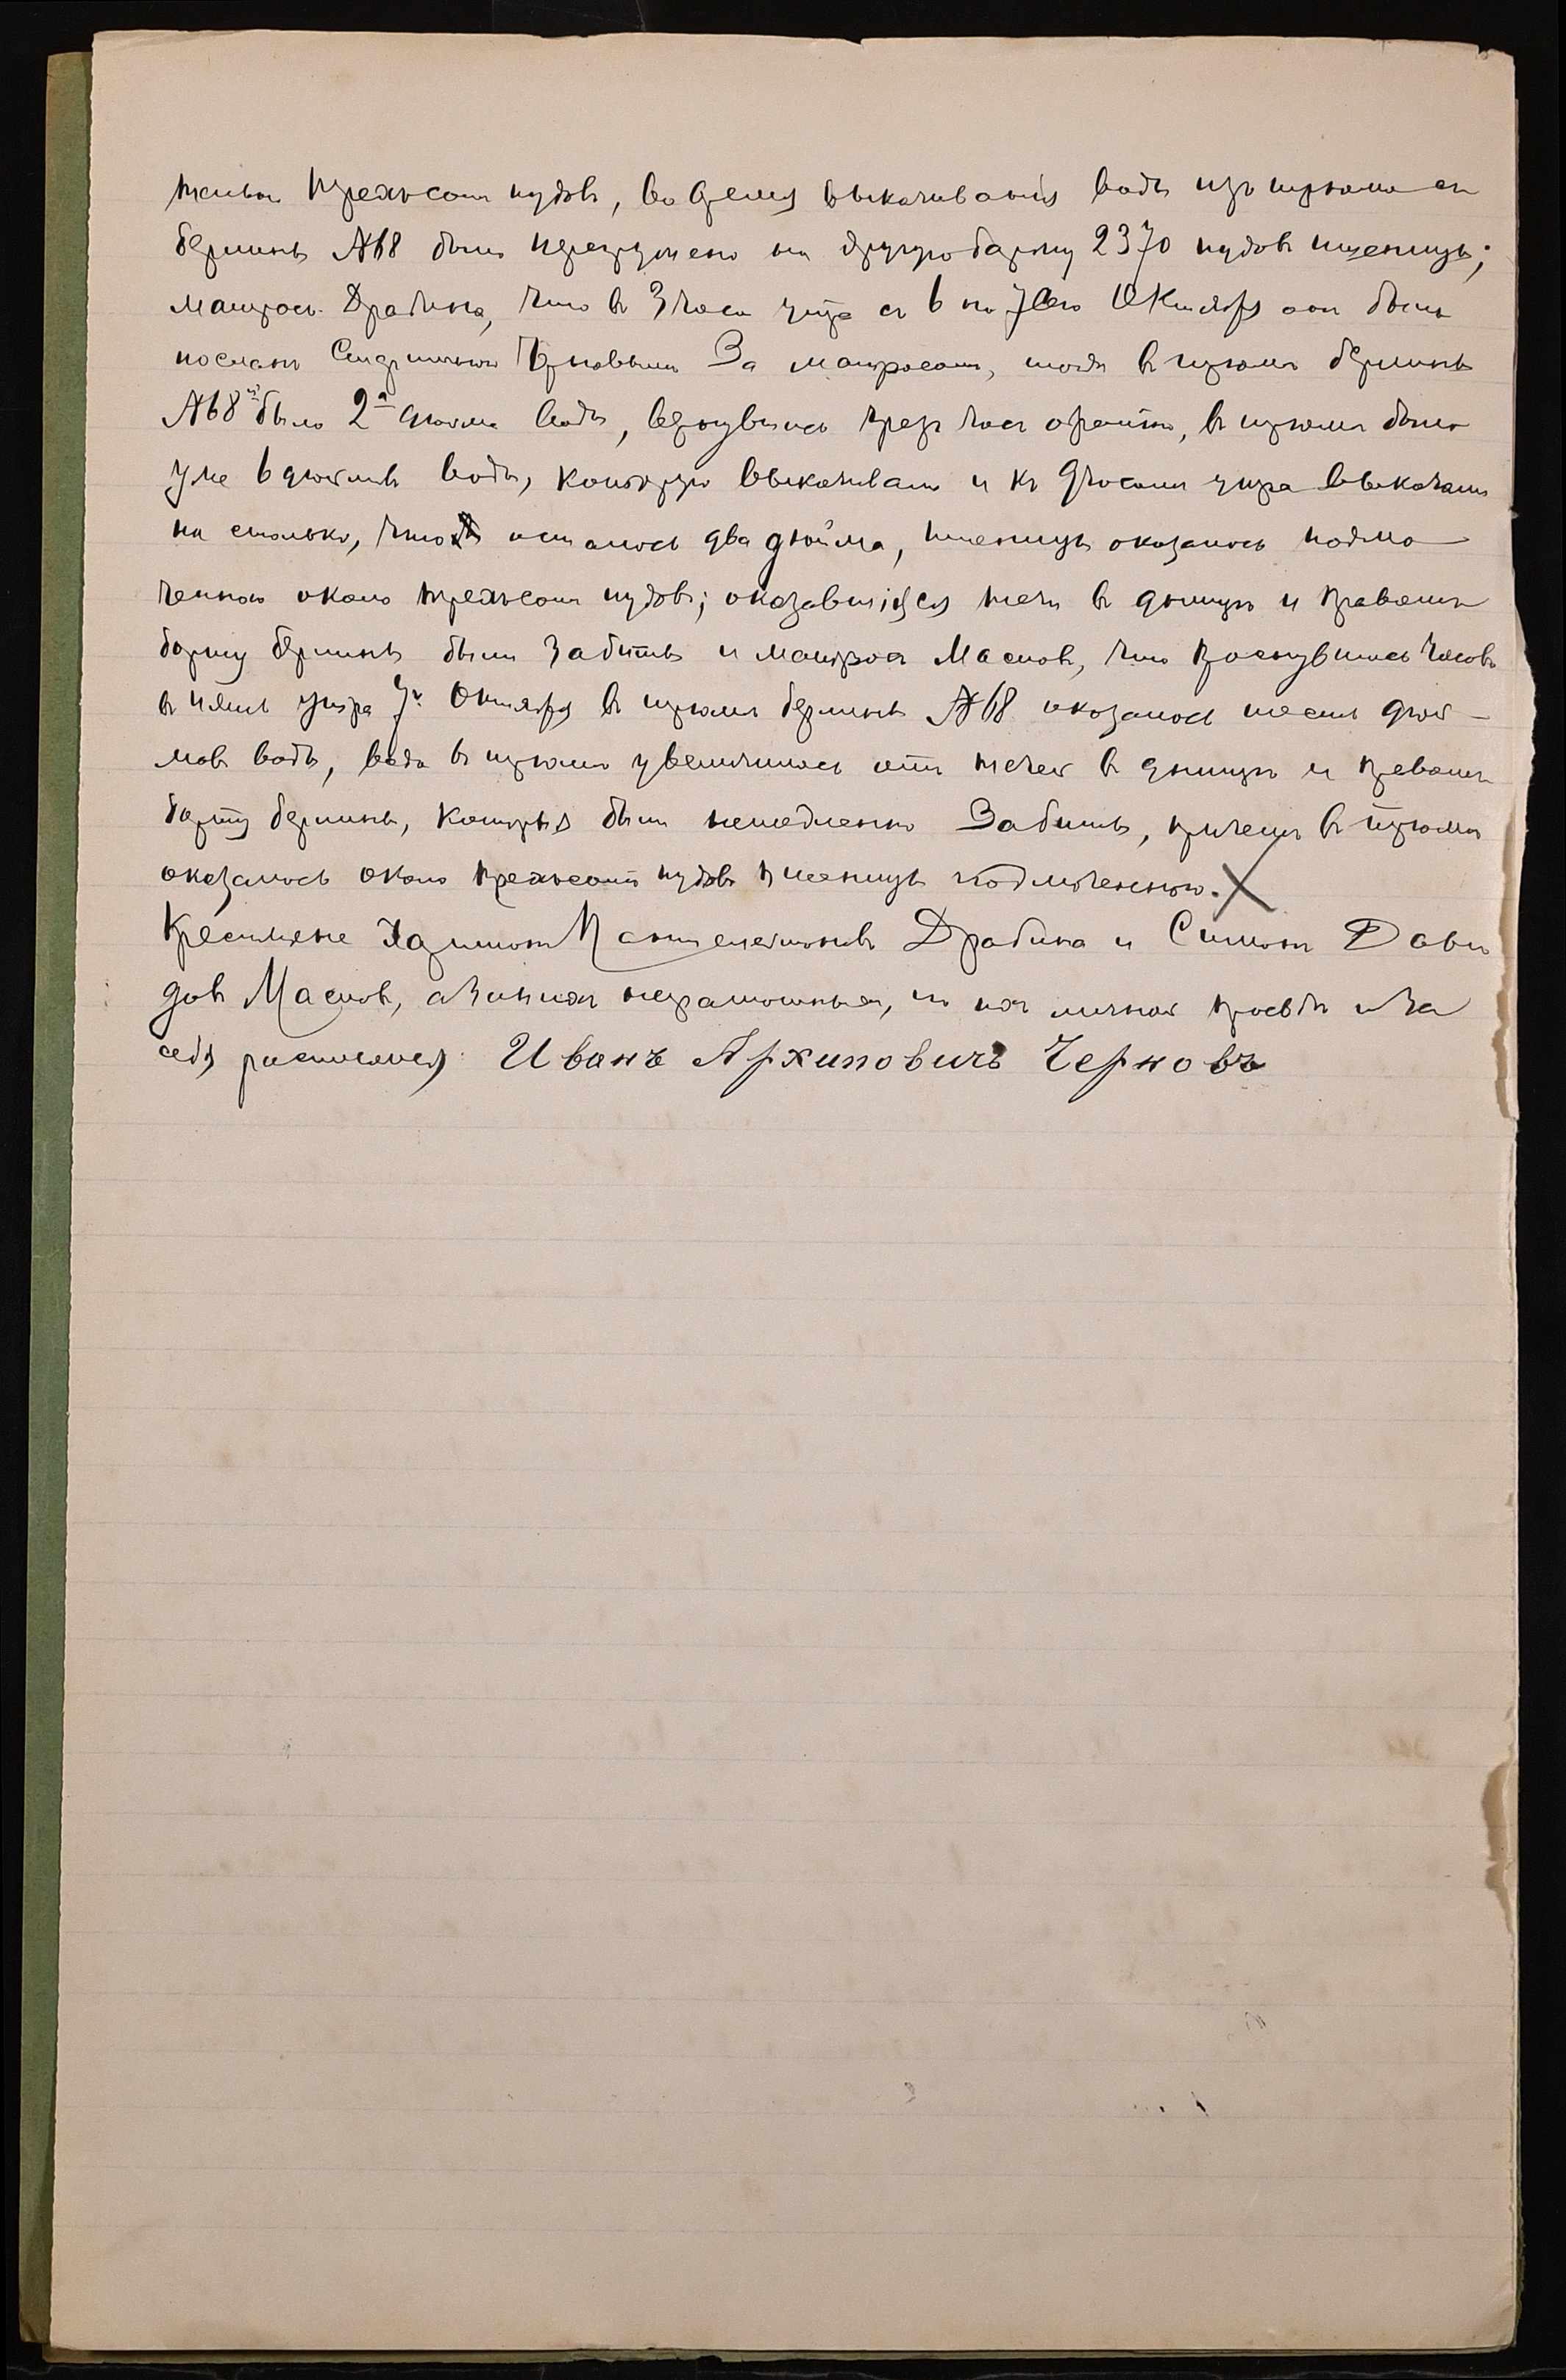 трехсотъ пудовъ, во время выкачиванія воды изъ трюма съ
берлины №68 было перегружено на другую баржу 2370 пудовъ пшеницы;
матросъ Драбина, что въ 3 часа утра съ 6 на 7 Октября онъ былъ
посланъ Черновымъ За матросомъ, тогда въ трюмѣ берлины
№68 было 2 дюйма воды, вернувшись чрезъ часъ обратно, въ трюмѣ было
уже 6 дюймовъ воды, которую выкачивали и къ 9 часамъ утра выкачали
на столько, что осталось два дюйма, пшеницы оказалось подмо
ченною около трехсотъ пудовъ; оказавшіяся течи въ днищѣ и правомъ
борту берлины были забиты и матросъ Масловъ, что проснувшись часовъ
въ пять утра 7 Октября въ трюмѣ берлины №68 оказалось шесть дюй-
мовъ воды, вода въ трюмѣ увеличилась отъ течей въ днищѣ и правомъ
борту берлины, которыя были немедленно Забиты, причемъ въ трюмѣ
оказалось около трехсотъ пудовъ пшеницы подмоченною.
Крестьяне Пантелеймоновъ Драбина и Симонъ Давы
довъ Масловъ, а за нихъ неграмотныхъ, по ихъ личной просьбѣ и За
себя росписался Иванъ Архиповичъ Черновъ